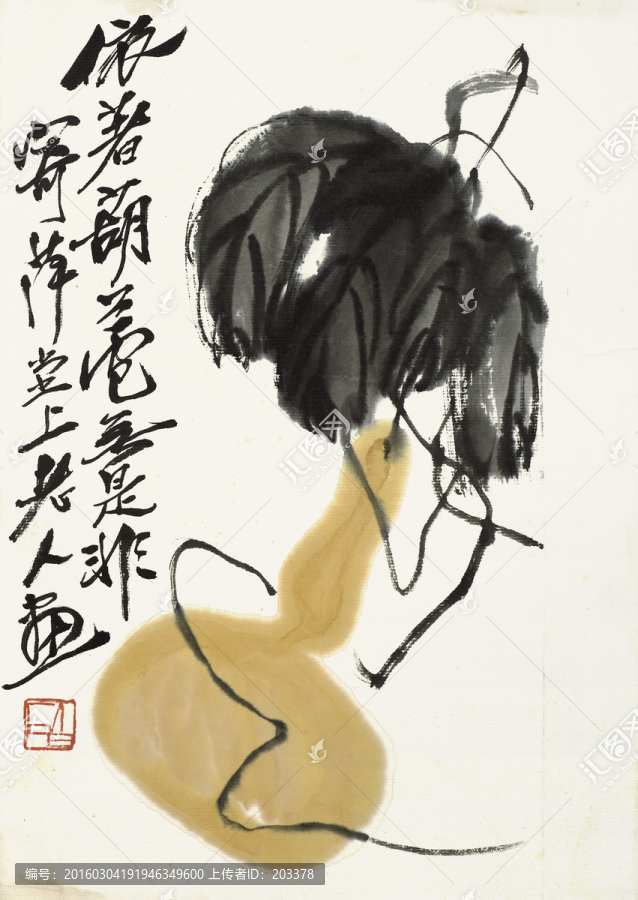 著葫蘆無是非
寄萍堂上老人画
汇图网
编号：20160304191946349600 上传者ID：203378